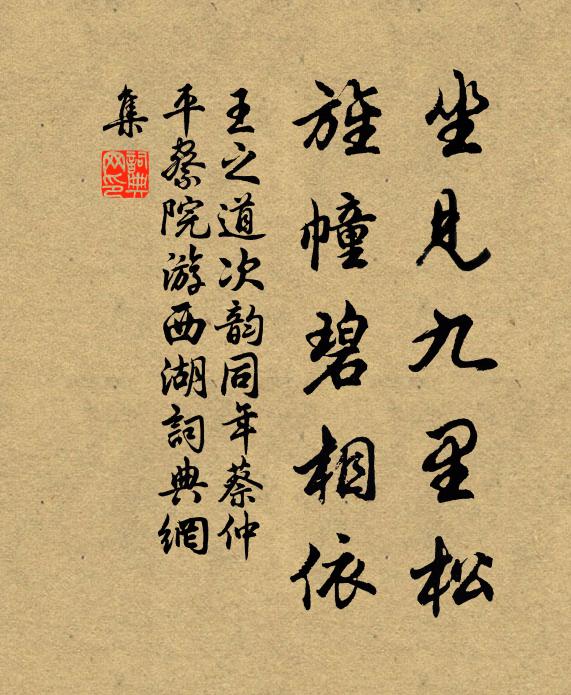 坐見九里松
旌幢碧相依
王之道次韵同年蔡仲
平察院游西湖詞典網
集
詞典網印